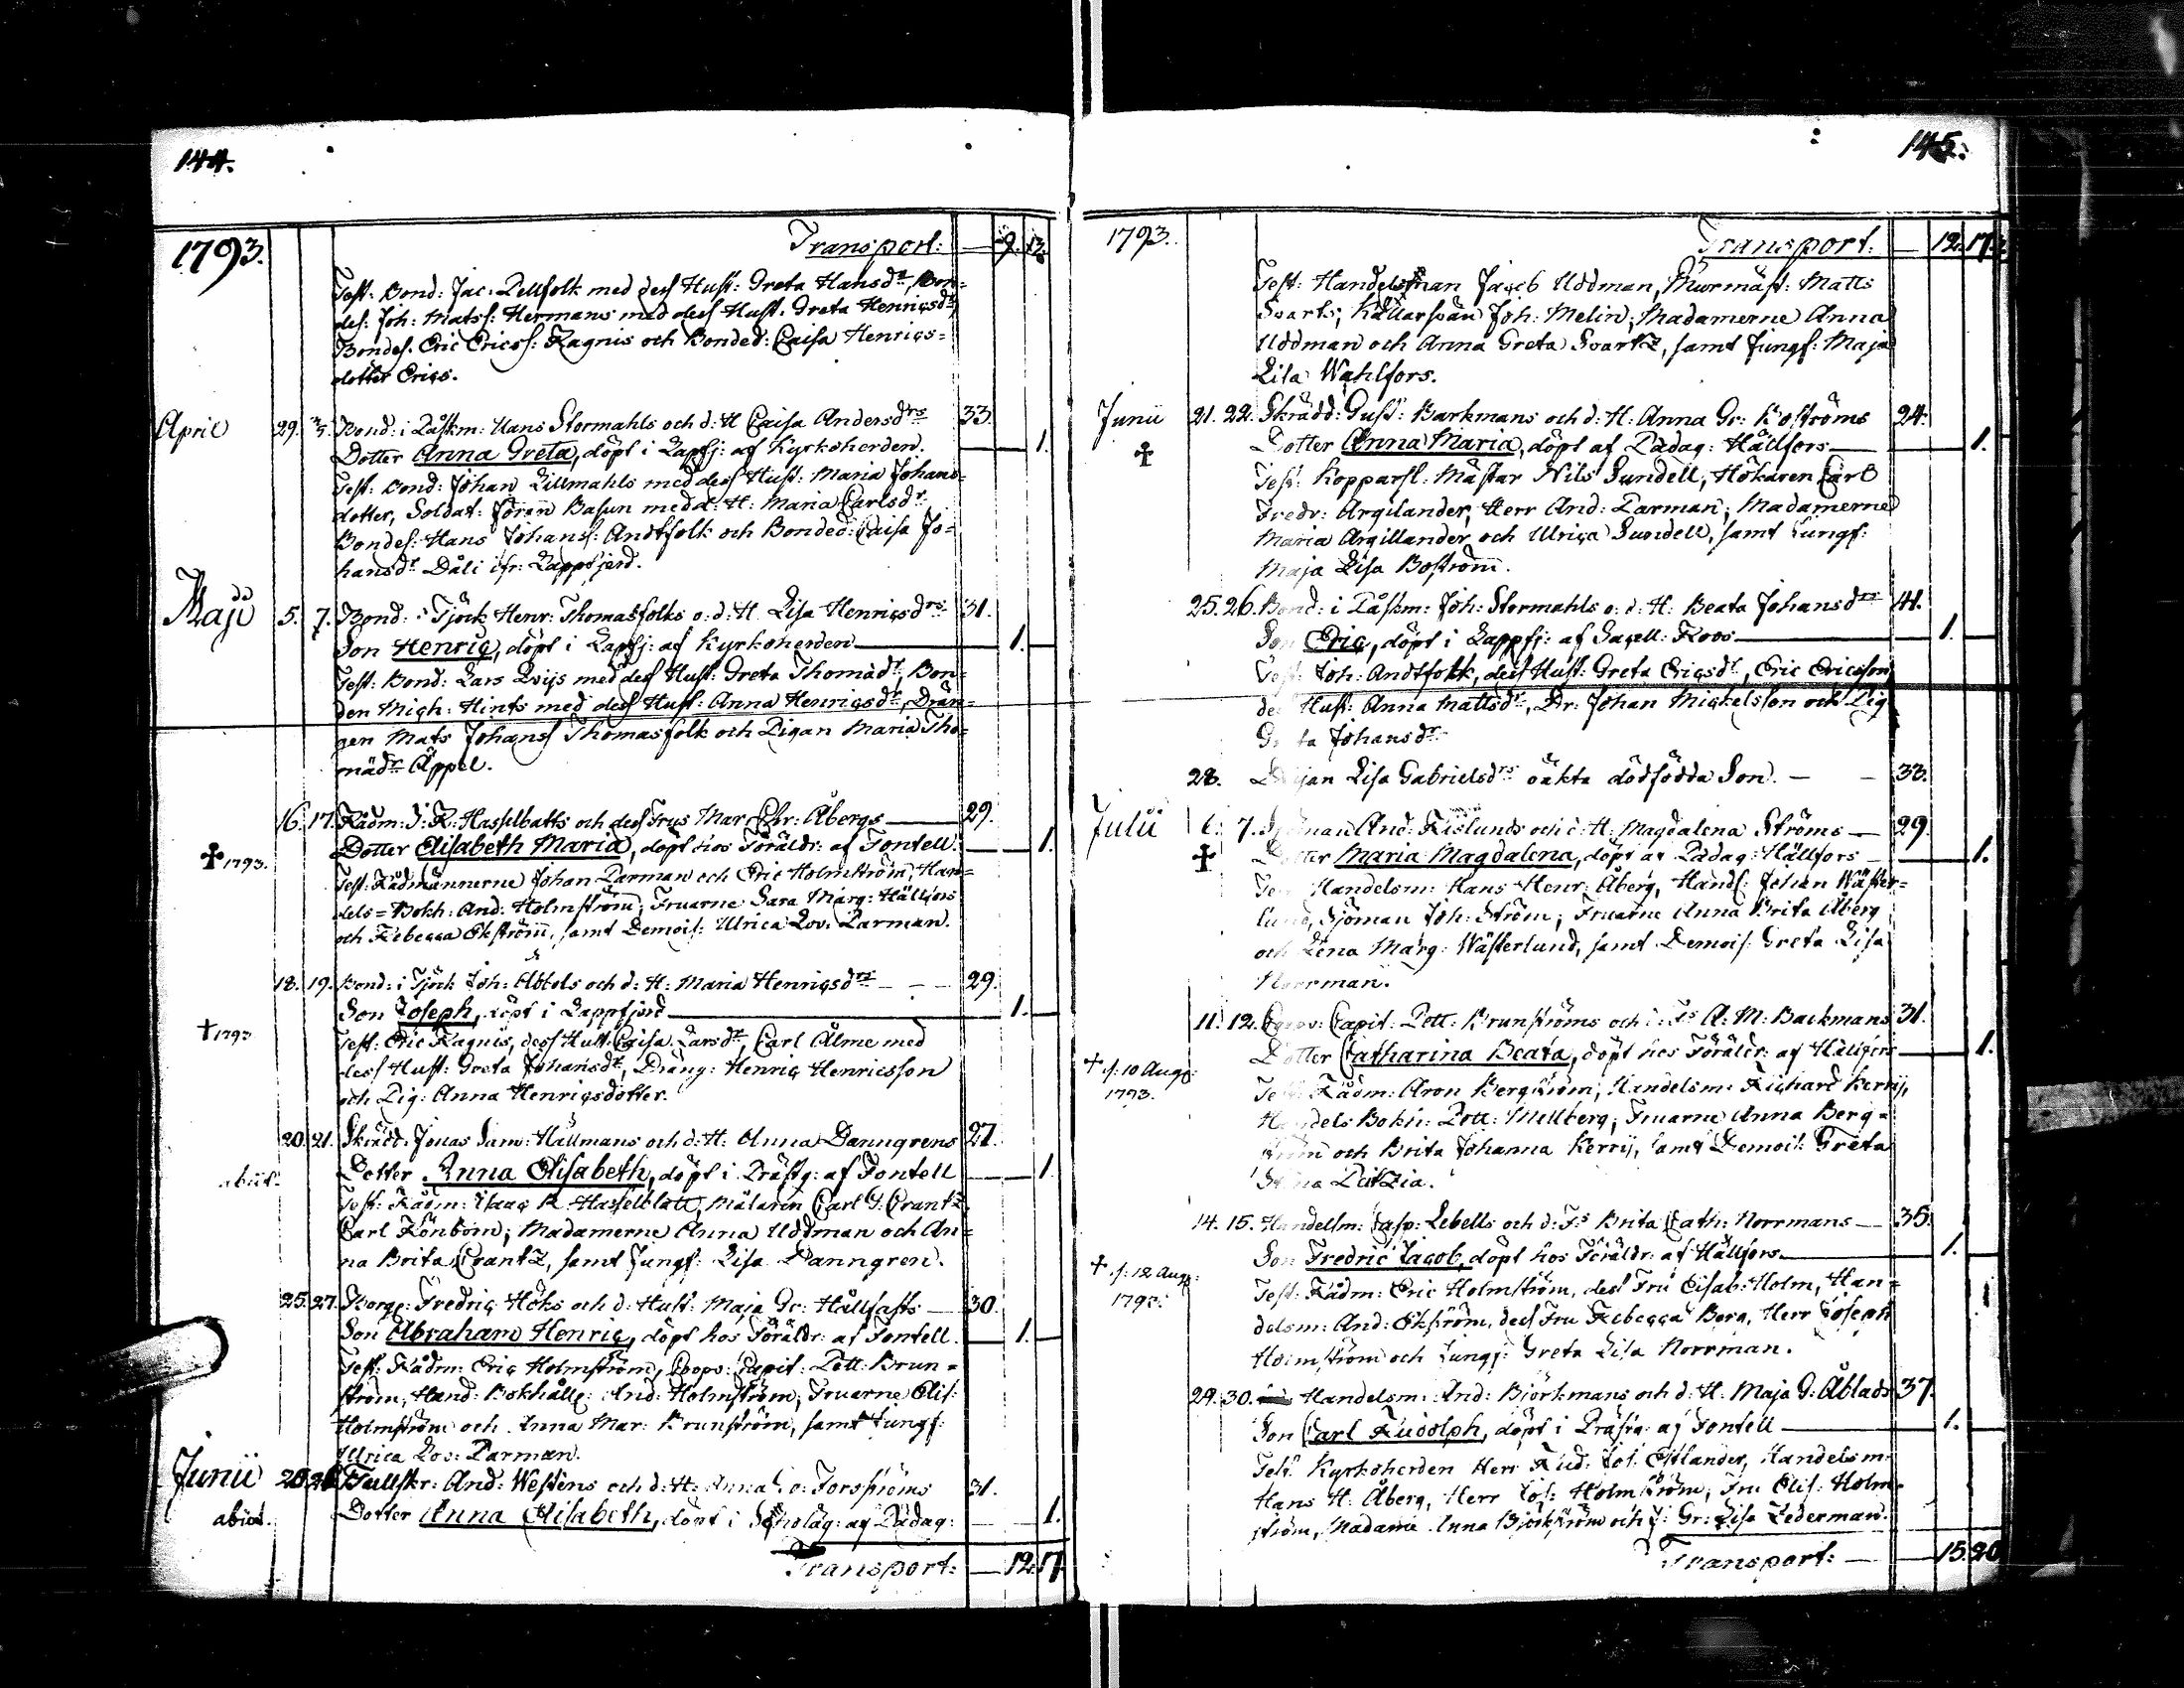 144.
1793. Transport: — 9. 13.
Test: Bond: Jac: Pellfolk med dess Hust: Greta Hansdr, Bon=
des: Joh: Matss: Hermans med dess Hust: Greta Henricsdr
Bondes. Eric Ericss: Ragnis och Bonded: Caisa Henrics=
dotter Erics.
April 29. 3/5. Bond: i Påskm: Hans Stormahls och d: H Caisa Andersdrs 33.
Dotter Anna Greta, döpt i Lappfj: af Kyrkoherden. — 1.
Test: Bond: Johan Lillmahls med dess Hust: Maria Johans=
dotter, Soldat: Jöran Basun med d: H: Maria Carlsdr
Bondes: Hans Johanss: Andtfolk och Bonded: Caisa Jo=
hansdr Dåli ifr: Lappfjerd.
Maji 5. 7. Bond: i Tjöck Henr: Thomasfolks o: d: H. Lisa Henricsdrs 31.
Son Henric, döpt i Lapfj: af Kyrkoherden — 1. —
Test: Bond: Lars Qvijs med dess Hust: Greta Thomädr, Bon=
den Mich: Hints med dess Hust: Anna Henricsdr, Drän=
gen Mats Johanss Thomasfolk och Pigan Maria Tho=
mädr Äppel.
16. 17. Rådm: I: R: Hasselbatts och dess Frus Mar Chr: Åbergs — 29.
✝ 1793. Dotter Elisabeth Maria, döpt hos Föräldr: af Fontell. — 1.
Test: Rådmännerne Johan Parman och Eric Holmström, Han=
dels=Bokh: And: Holmström, Fruarne Sara Marg: Hällfors
och Rebecca Ekström, samt Demois: Ulrica Lov. Parman.
18. 19. Bond: i Tjöck Joh: Abbols och d: H: Maria Henricsdrs — — 29.
Son Joseph, döpt i Lappfjerd — 1. —
✝ 1793 Test: Eric Ragnis, dess Hust. Caisa Larsdr, Carl Ålme med
dess Hust: Greta Johansdr, Dräng: Henric Henricsson
och Pig: Anna Henricsdotter.
20. 21. Skrädd: Jonas Sam: Hällmans och d: H: Anna Danngrens 27.
abiit. Dotter Anna Elisabeth, döpt i Prästg: af Fontell — 1.
Test: Rådm: Isaac R. Hasselblatt, Målaren Carl G: Crantz
Carl Rönbom; Madamerne Anna Uddman och An=
na Brita Crantz, samt Jungf: Lisa Danngren.
25. 27. Borge: Fredric Höks och d: Hust: Maja Gr: Hållfasts — 30.
Son Abraham Henric, döpt hos Föräldr: af Fontell. — 1. —
Test: Rådm: Eric Holmström, Coopv: Capit: Pett: Brun=
ström, Hand: Bokhålle: And: Holmström, Fruarne Elis:
Holmström och Anna Mar: Brunström, samt Jungf:
Ulrica Lov: Parman.
Junii 26. Tullskr: And: Westens och d: H: Anna Forsströms 31.
abiit. Dotter Anna Elisabeth, döpt i af Pädag: — 1.
Transport: — 12. 17.
145.
1793. Transport: — 12. 17.
Test: Handelsman Jacob Uddman, Murmäst: Matts
Svarts; Källarsvän Joh: Melin; Madamerne Anna
Uddman och Anna Greta Svartz, samt Jungf: Maja
Lisa Wahlfors.
Junii 21. 22. Skrädd: Gust: Barkmans och d: H: Anna Gr: Boströms 24.
✝ Dotter Anna Maria, döpt af Pädag: Hällfors — 1.
Test: Kopparsl. Mästar Nils Sundell, Hökaren Carl
Fredr: Argilander, Herr And: Parman, Madamerne
Maria Argillander och Ulrica Sundell, samt Jungf:
Maja Lisa Boström.
25. 26. Bond: i Påskm: Joh: Stormahls o: d: H: Beata Johansdrs 41.
Son Eric, döpt i Lappfj: af Sacell: Roos — 1. —
Test: Joh: Andtfolk, dess Hust: Greta Ericsdr, Eric Ericsson
des Hust: Anna Mattsdr, Dr: Johan Mickelsson och Pig
Greta Johansdr
28. Pigan Lisa Gabrielsdrs oäkta dödfödda Son. — — 33.
Julii 6. 7. Sjöman And: Röslunds och d: H: Magdalena Ströms — 29
✝ Dotter Maria Magdalena, döpt af Pädag: Hällfors — 1.
Test Handelsm: Hans Henr: Åberg, Handl: Johan Wäster=
lund, Sjöman Joh: Ström; Fruarne Anna Brita Åberg
och Lena Marg: Wästerlund, samt Demois: Greta Lisa
Norrman.
11. 12. Copv: Capit: Pett: Brunströms och d: Fs A: M: Backmans 31.
Dotter Catharina Beata, döpt hos Föräldr: af Hällfors — 1.
✝ d: 10 Aug: 1793. Test: Rådm: Aron Bergström; Handelsm: Richard Kerrij,
Handels Bokh: Pett: Mellberg; Fruarne Anna Berg=
ström och Brita Johanna Kerrij, samt Demois: Greta
Stina
14. 15. Handelsm: Casp: Lebells och d: Fs Brita Cath: Norrmans — 35.
Son Fredric Jacob, döpt hos Föräldr: af Hällfors — 1. —
✝ d: 12 Aug: 1793. Test: Rådm: Eric Holmström, dess Fru Elisab: Holm, Han=
delsm: And: Ekström, dess Fru Rebecca Berg, Herr Joseph
Holmström och Jungf: Greta Lisa Norrman.
29. 30. Handelsm: And: Björkmans och d: H: Maja G: Åblads 37.
Son Carl Rudolph, döpt i Prästg: af Fontell — 1. —
Test: Kyrkoherden Herr Rud: Estlander, Handelsm:
Hans H: Åberg, Herr Jos: Holmström, Fru Elis: Holm=
ström, Madame Anna Björkström och J: Gr: Lisa Zederman.
Transport: — 15. 20